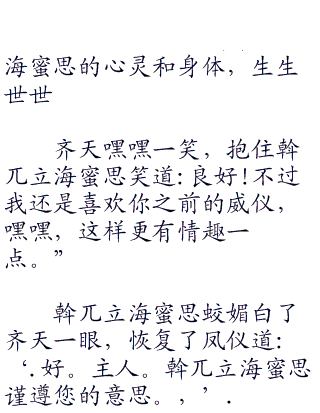 海蜜思的心灵和身体，生生
世世
齐天嘿嘿一笑，抱住斡
兀立海蜜思笑道:良好!不过
我还是喜欢你之前的威仪，
嘿嘿，这样更有情趣一
点。”
斡兀立海蜜思蛟媚白了
齐天一眼，恢复了凤仪道:
‘.好。主人。斡兀立海蜜思
谨遵您的意思。，’.